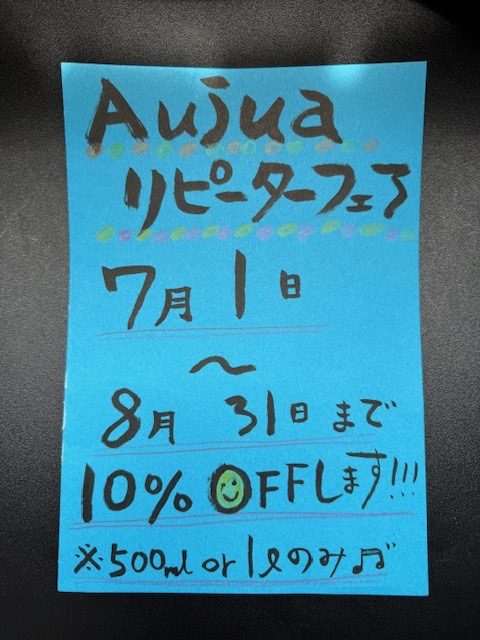 Aujua
リピーターフェア
7月1日
〜
8月 31日まで
10% OFFします!!!
※500ml or 1ℓのみ♬